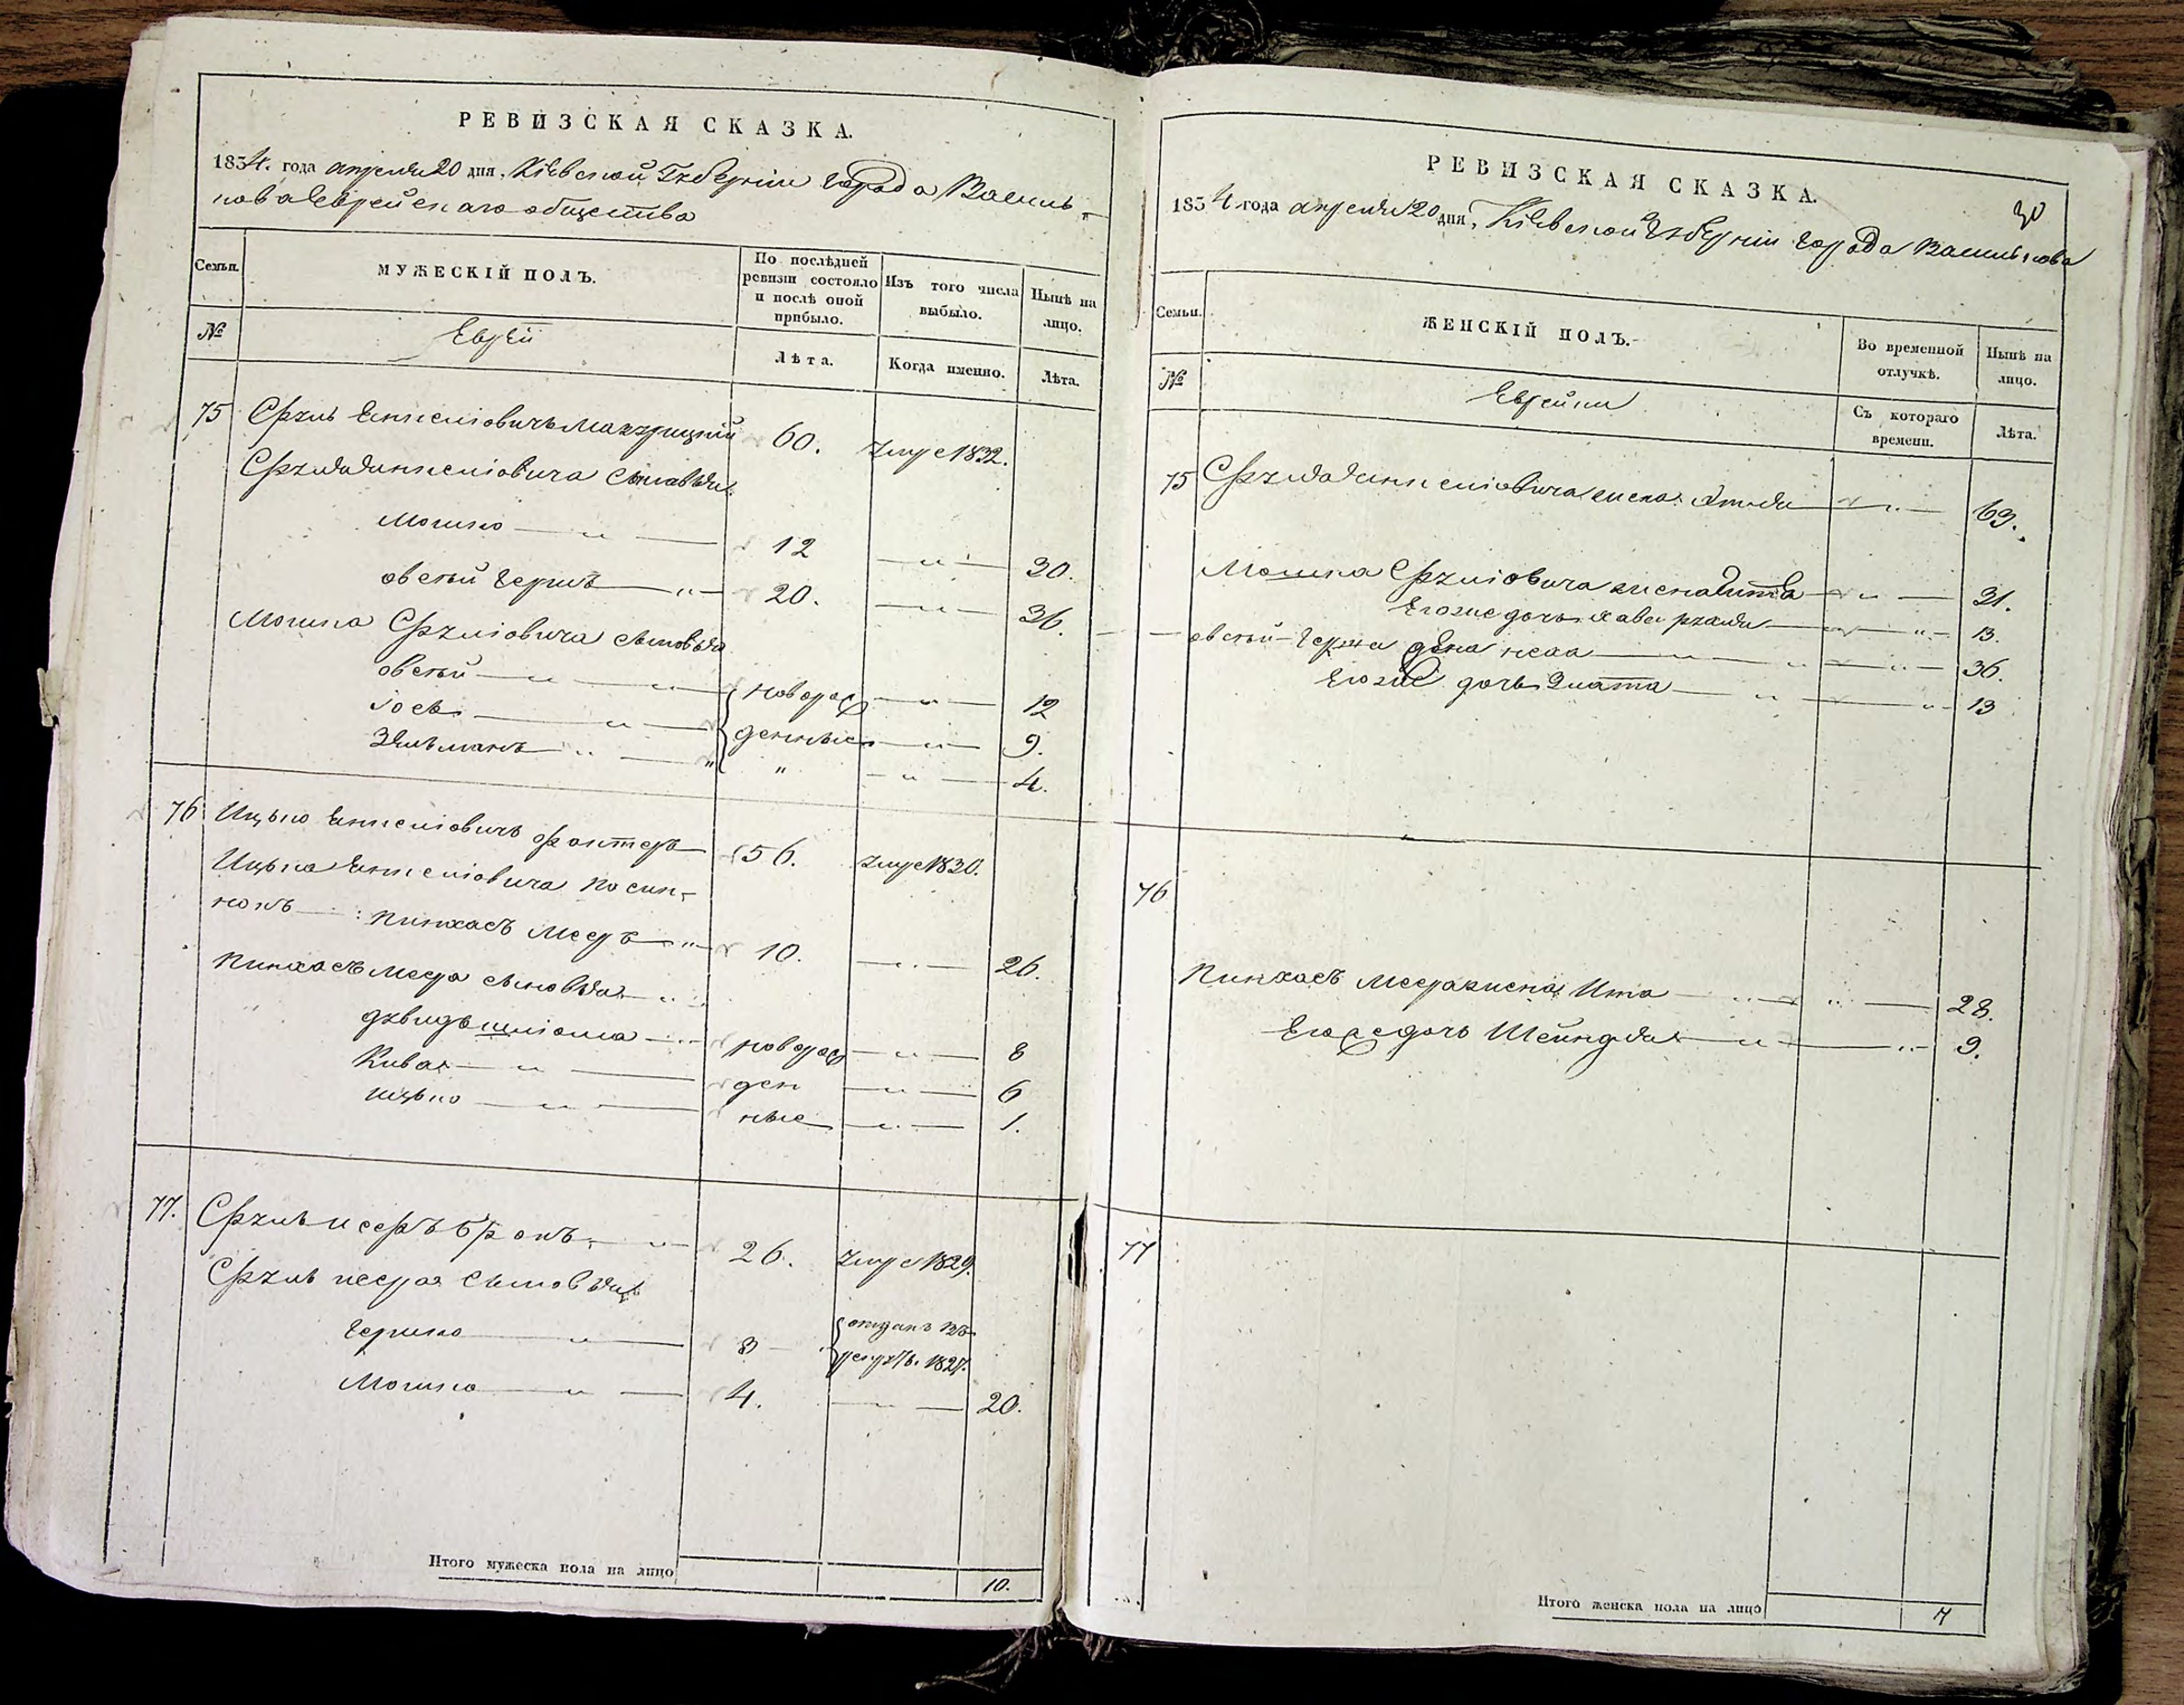 РЕВИЗСКАЯ СКАЗКА.
1834. года апреля 20 дня, Кіевской Губерніи города Василь-
кова Еврейскаго общества
Семьи.
МУЖЕСКІЙ ПОЛЪ.
По послѣдней ревизіи состояло и послѣ оной прибыло.
Изъ того числа выбыло.
Нынѣ на лицо.
№
Евреи
Лѣта.
Когда именно.
Лѣта.
75 Сруль 60. умре 1832.
сыновья
Мошко — " — 12 — " — 30.
овсей Гершъ — " — 20. — " — 36.
Мошка Срулювича сыновья
овсей — " — новорож — " — 12
іось — " — денные — " — 9.
Зельманъ " — " " — " — 4.
76 Ицько 56. умре 1830.
Ицька
Пинхасъ Мееръ — " — 10. — " — 26.
Пинхасъ Меера сыновья — "
шліома — новорож — " — 8
Кива — " — ден — " — 6
ицько — " — ные — " — 1.
77. Сруль — " — 26. умре 1829.
Сруль сыновья
Гершко — " — 8 — отданъ въ
рекруты 1827.
Мошко — " — 4. — " — 20.
Итого мужеска пола на лицо 10.
РЕВИЗСКАЯ СКАЗКА.
30
1834 года апреля 20 дня, Кіевской Губерніи города Василькова
Семьи.
ЖЕНСКІЙ ПОЛЪ.
Во временной отлучкѣ.
Нынѣ на лицо.
№
Еврейки
Съ котораго времени.
Лѣта.
75 жена — " — 69.
Мошка Срулювича жена — " — 31.
Егоже дочь — " — 13.
овсей-Герша жена — " — 36.
Егоже дочь Злата — " — 13
76
Пинхасъ Меера жена Ита — " — 28.
Егоже дочь Шейндля — " — 9.
77
Итого женска пола на лицо 7